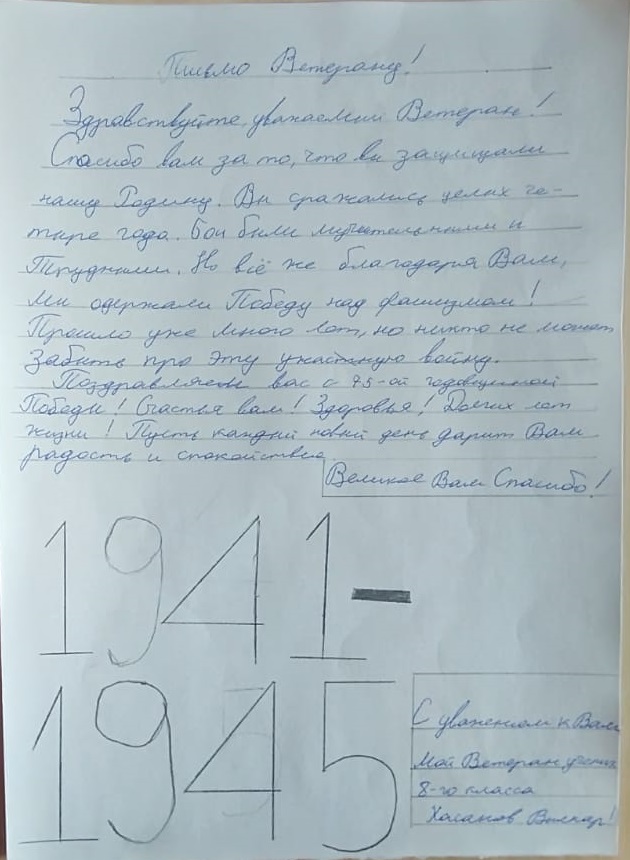 Письмо Ветерану!
Здравствуйте, уважаемый Ветеран!
Спасибо вам за то, что вы защищали
нашу Родину. Вы сражались целых че-
тыре года. Бои были мучительными и
трудными. Но всё же благодаря Вам,
мы одержали Победу над фашизмом!
Прошло уже много лет, но никто не может
забыть про эту ужастную войну.
Поздравляем вас с 75-ой годовщиной
Победы! Счастья вам! Здоровья! Долгих лет
жизни! Пусть каждый новый день дарит Вам
радость и спокойствие.
Великое Вам Спасибо!
1941-
1945
С уважением к Вам
Мой Ветеран ученик
8-го класса
Хасанов